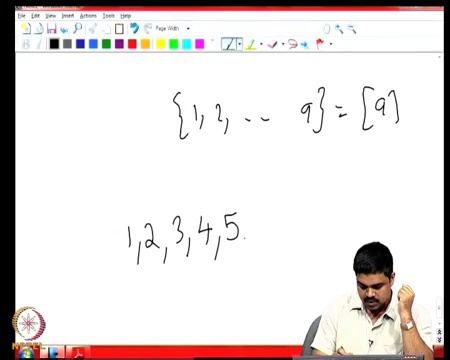 File Edit View Insert Actions Tools Help
Page Width
{1, 2, .. 9} = [9]
1, 2, 3, 4, 5.